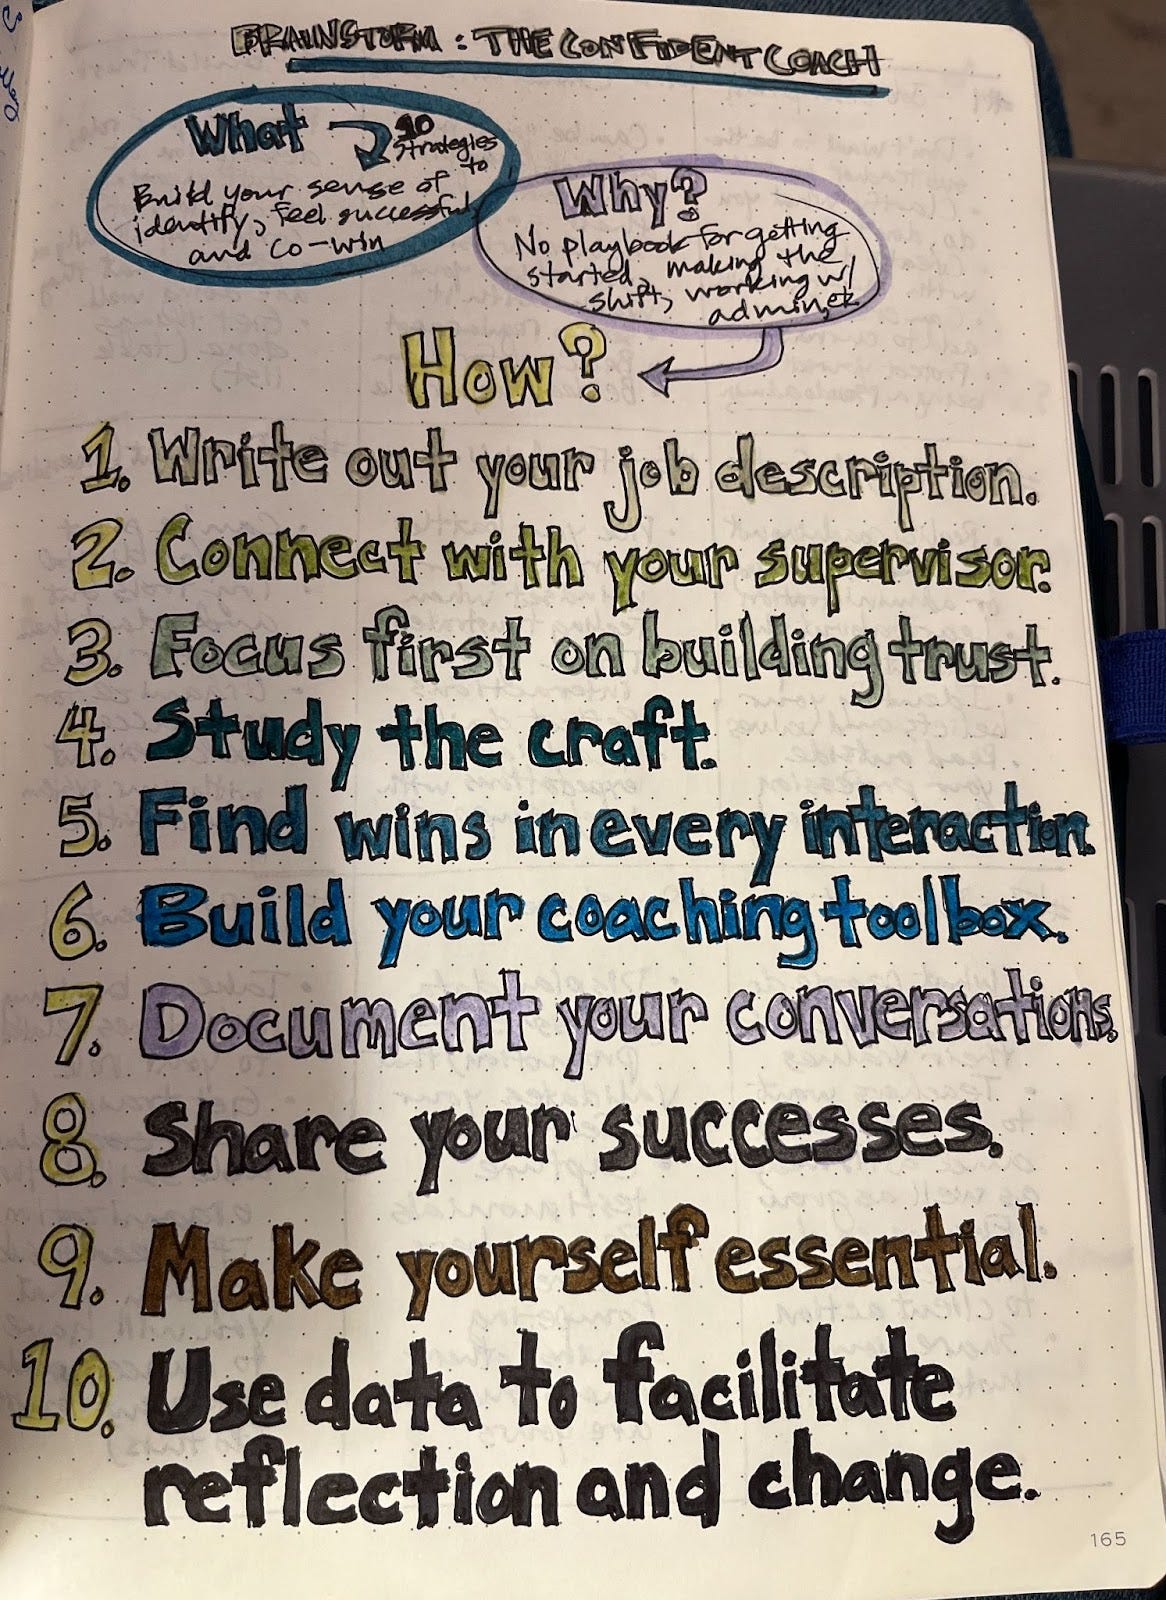 BRAINSTORM: THE CONFIDENT COACH
What 10
Strategies
to
Build your sense of
identify, feel successful,
and co-win
Why?
No playbook for getting
started, making the
shift, working w/
admin, etc
How?
1. Write out your job description.
2. Connect with your supervisor.
3. Focus first on building trust.
4. Study the craft.
5. Find wins in every interaction.
6. Build your coaching toolbox.
7. Document your conversations.
8. Share your successes.
9. Make yourself essential.
10. Use data to facilitate
reflection and change.
165